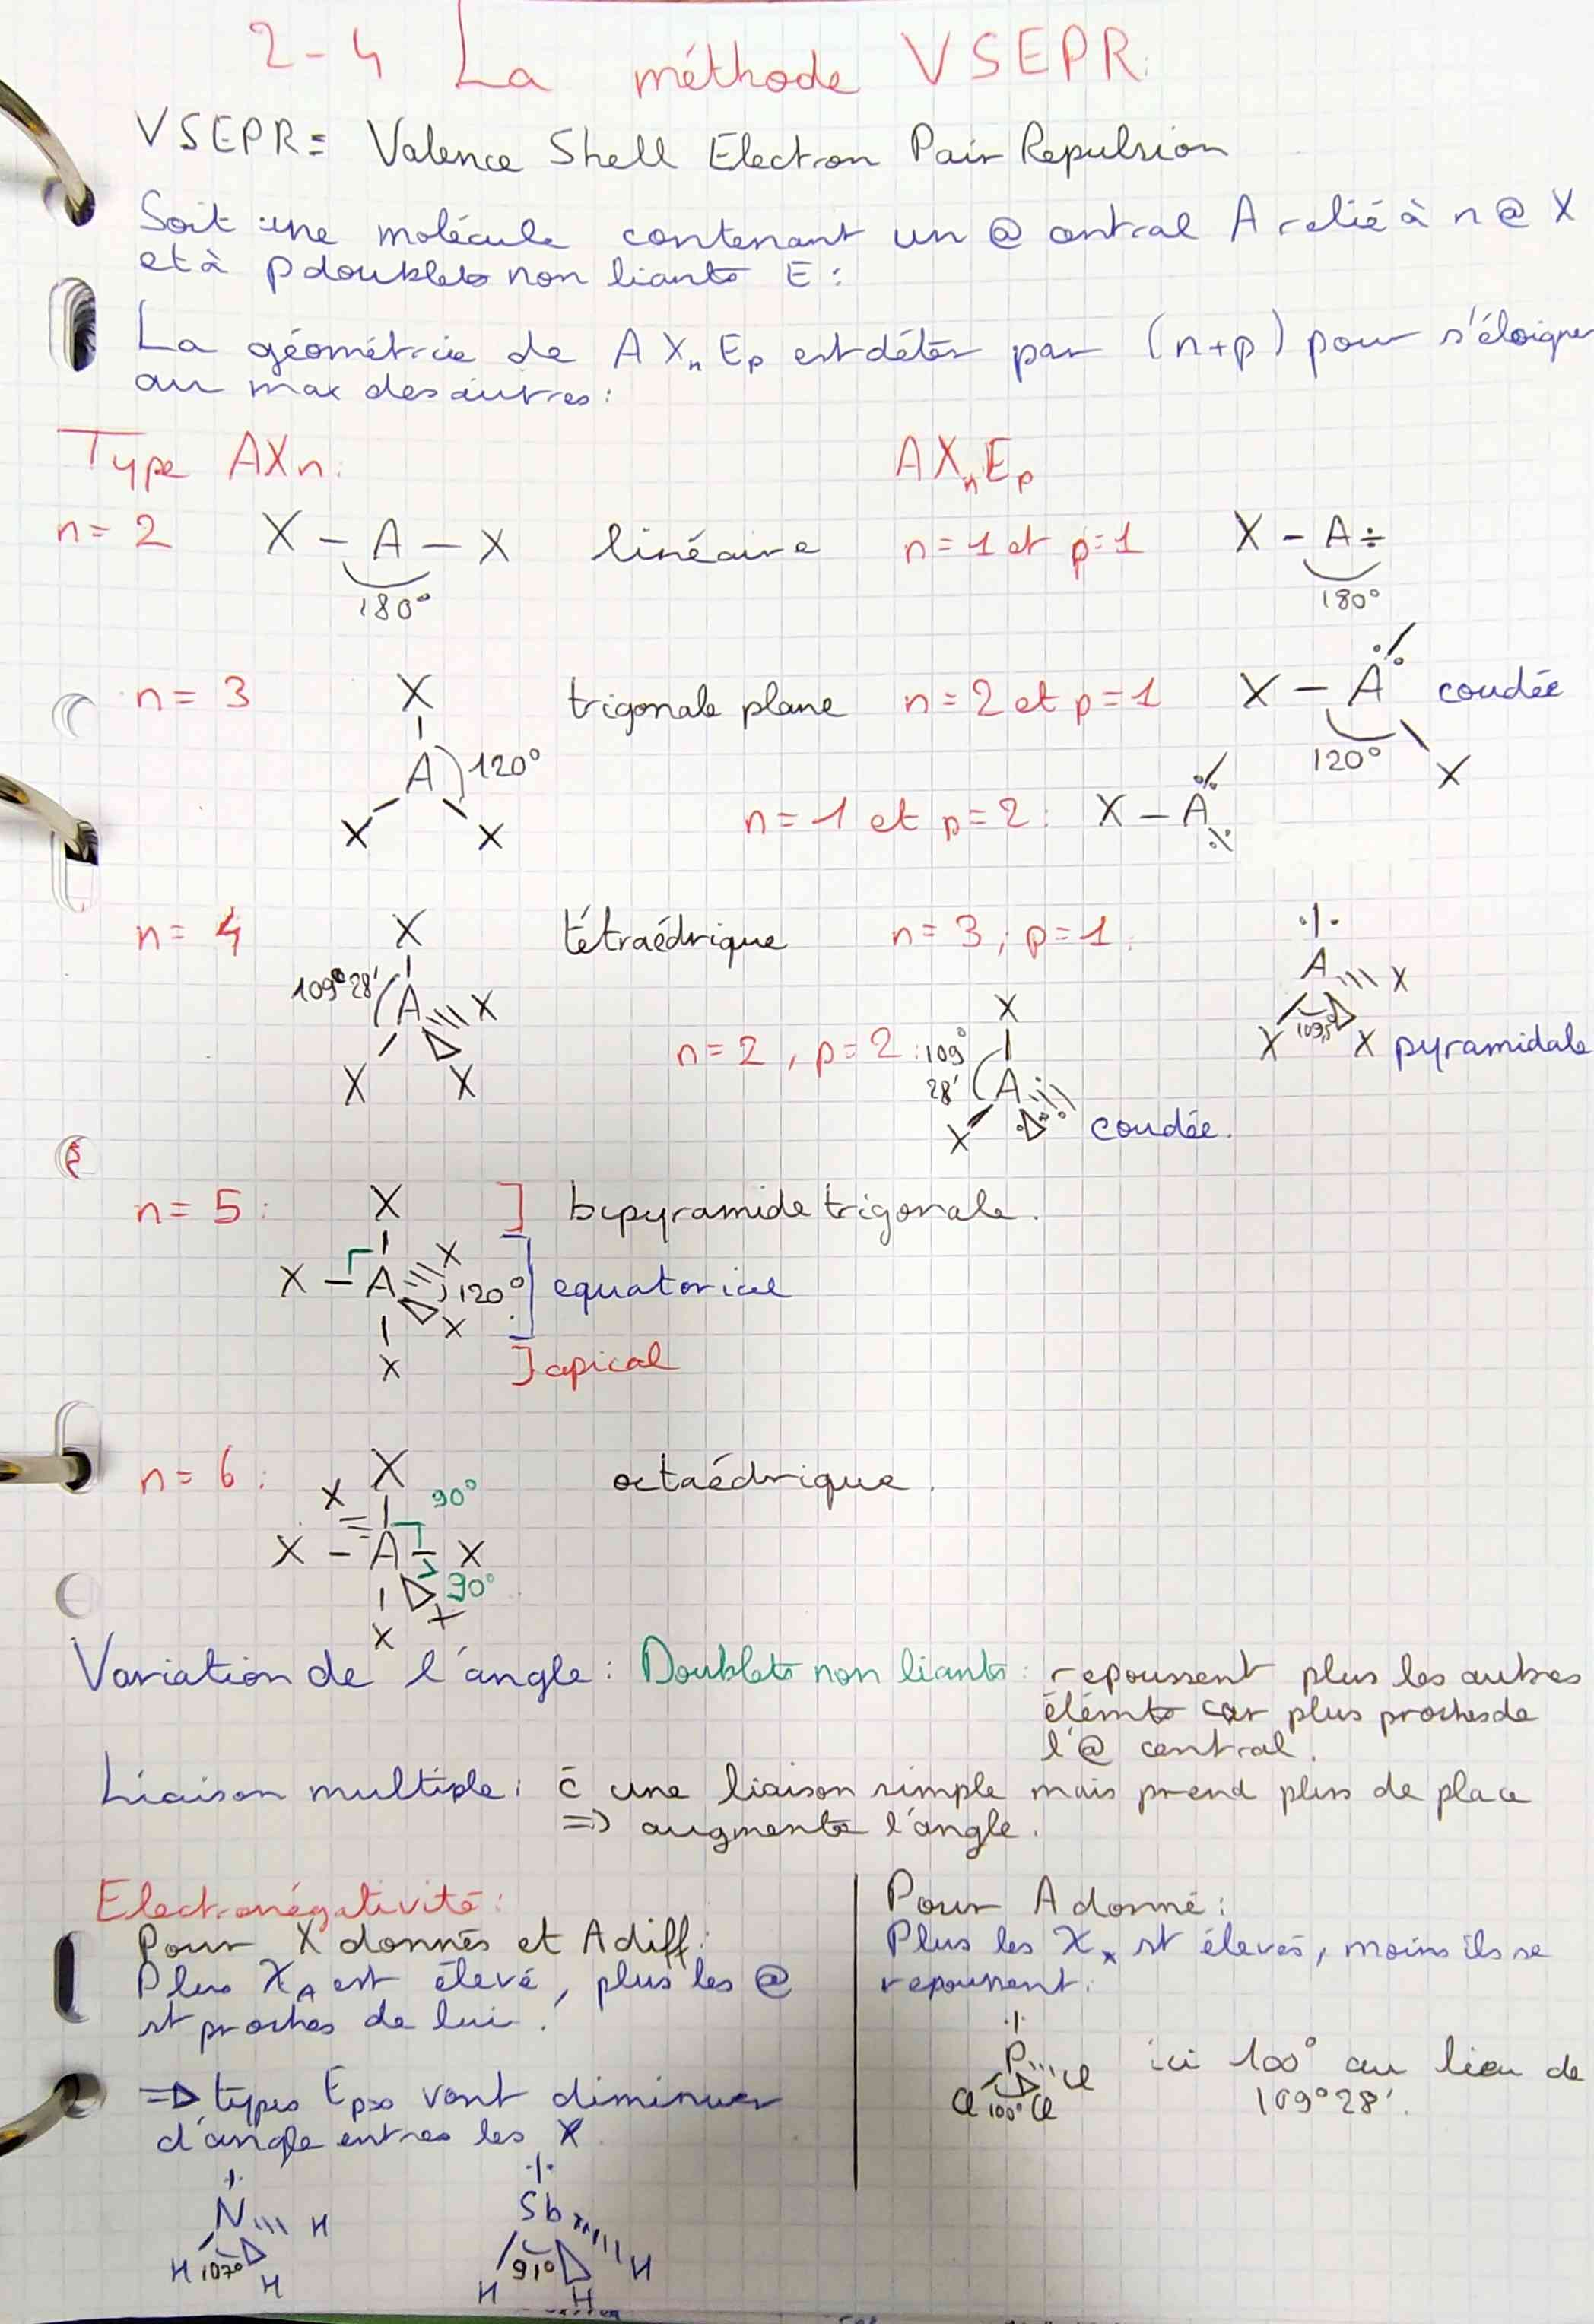 2-4 La méthode VSEPR.
VSEPR = Valence Shell Electron Pair Repulsion
Soit une molécule contenant un @ central A relié à n @ X
et à p doublets non liants E :
La géométrie de AXnEp est déter par (n+p) pour s'éloigner
au max des autres :
Type AXn. AXnEp
n=2 X - A - X linéaire n=1 et p=1 X - A
180° 180°
n=3 X trigonale plane n=2 et p=1 X - A coudée
A 120° 120° X
X X n=1 et p=2 : X - A
n=4 X tétraédrique n=3, p=1.
109°28' A X A X
X X 109,5 X X pyramidale
n=2, p=2 : 109° 28' X
A
X coudée.
n=5 : X ] bipyramide trigonale.
X - A X 120° equatorial
X
X ] apical
n=6 : X octaédrique.
X 90°
X - A - X
90°
X X
Variation de l'angle : Doublets non liants : repoussent plus les autres
élémts car plus proches de
l'@ central.
Liaison multiple : c̄ une liaison simple mais prend plus de place
=> augmente l'angle.
Electronégativité :
Pour X donnés et A diff :
Plus χA est élevé, plus les @
st proches de lui.
=> types Ep>0 vont diminuer
d'angle entres les X
N H Sb H
H 107° H H 91° H
Pour A donné :
Plus les χx st élevés, moins ils se
repoussent :
P Cl ici 100° au lieu de
Cl 100° Cl 109°28'.